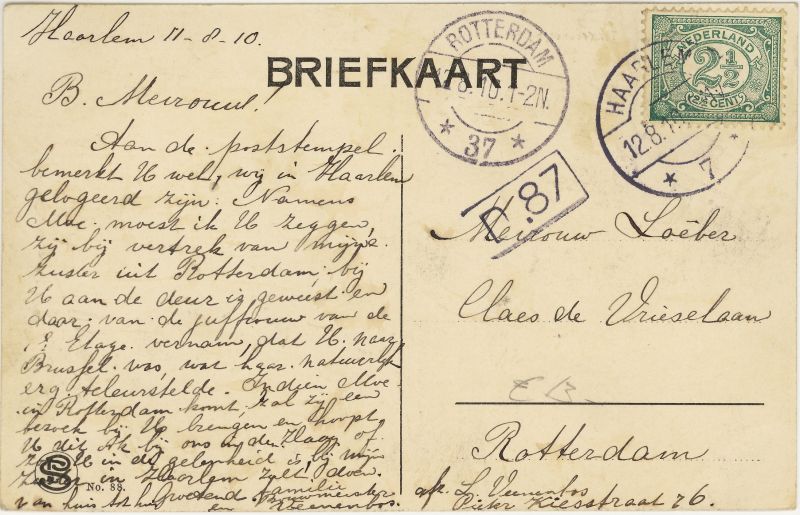 Haarlem 11-8-10.
BRIEFKAART
B. Mevrouw!
Aan de poststempel
bemerkt U wel, wij in Haarlem
gelogeerd zijn. Namens
Moe. moest ik U zeggen,
zij bij vertrek van mijne
zuster uit Rotterdam, bij
U aan de deur is geweest en
daar van de juffrouw van de
1e Etage vernam, dat U. naar
Brussel was, wat haar natuurlijk
erg teleurstelde. Indien Moe
in Rotterdam komt, zal zij een
bezoek bij U brengen en hoopt
U dit ook bij ons in den Haag of
zoo U in de gelegenheid is bij mijn
zuster in Haarlem zult doen.
van huis tot huis groetend familie
Bouwmeester
en Veenenbos.
No. 88.
ROTTERDAM
12.8.10.1-2N.
* 37 *
D.87
NEDERLAND
2½
(2½ CENT)
HAARLEM
12.8.1
* 7 *
Mevrouw Loëber
Claes de Vrieselaan
Rotterdam
afz. L. Veenenbos
Pieter Kiesstraat 76.